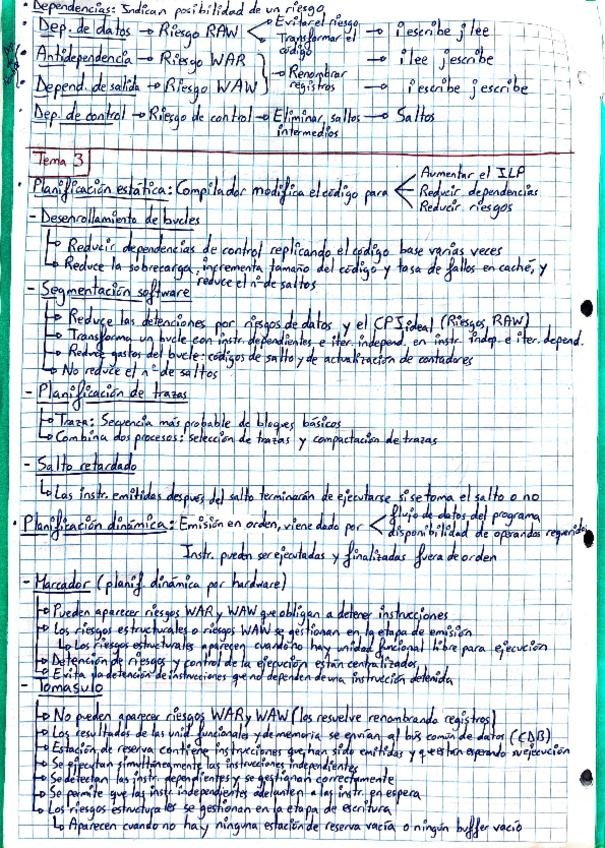 · Dependencias: Indican posibilidad de un riesgo
· Dep. de datos → Riesgo RAW < Evitar el riesgo / Transformar el código → i escribe j lee
· Antidependencia → Riesgo WAR } → i lee j escribe
→ Renombrar registros
· Depend. de salida → Riesgo WAW } → i escribe j escribe
· Dep. de control → Riesgo de control → Eliminar saltos intermedios → Saltos
Tema 3
· Planificación estática: Compilador modifica el código para < Aumentar el ILP
Reducir dependencias
Reducir riesgos
- Desenrollamiento de bucles
↳ Reducir dependencias de control replicando el código base varias veces
↳ Reduce la sobrecarga, incrementa tamaño del código y tasa de fallos en caché, y
reduce el nº de saltos
- Segmentación software
↳ Reduce las detenciones por riesgos de datos y el CPI ideal (Riesgos RAW)
↳ Transforma un bucle con instr. dependientes e iter. independ. en instr. indep. e iter. depend.
↳ Reduce gastos del bucle: códigos de salto y de actualización de contadores
↳ No reduce el nº de saltos
- Planificación de trazas
↳ Traza: Secuencia más probable de bloques básicos
↳ Combina dos procesos: selección de trazas y compactación de trazas
- Salto retardado
↳ Las instr. emitidas después del salto terminarán de ejecutarse si se toma el salto o no
· Planificación dinámica: Emisión en orden, viene dado por < flujo de datos del programa
disponibilidad de operandos requeridos
Instr. pueden ser ejecutadas y finalizadas fuera de orden
- Marcador (planif. dinámica por hardware)
↳ Pueden aparecer riesgos WAR y WAW que obligan a detener instrucciones
↳ Los riesgos estructurales o riesgos WAW se gestionan en la etapa de emisión
↳ Los riesgos estructurales aparecen cuando no hay unidad funcional libre para ejecución
↳ Detención de riesgos y control de la ejecución están centralizados
↳ Evita la detención de instrucciones que no dependen de una instrucción detenida
- Tomasulo
↳ No pueden aparecer riesgos WAR y WAW (los resuelve renombrando registros)
↳ Los resultados de las unid. funcionales y de memoria se envían al bus común de datos (CDB)
↳ Estación de reserva contiene instrucciones que han sido emitidas y que están esperando su ejecución
↳ Se ejecutan simultáneamente las instrucciones independientes
↳ Se detectan las instr. dependientes y se gestionan correctamente
↳ Se permite que las instr. independientes adelanten a las instr. en espera
↳ Los riesgos estructurales se gestionan en la etapa de escritura
↳ Aparecen cuando no hay ninguna estación de reserva vacía o ningún buffer vacío